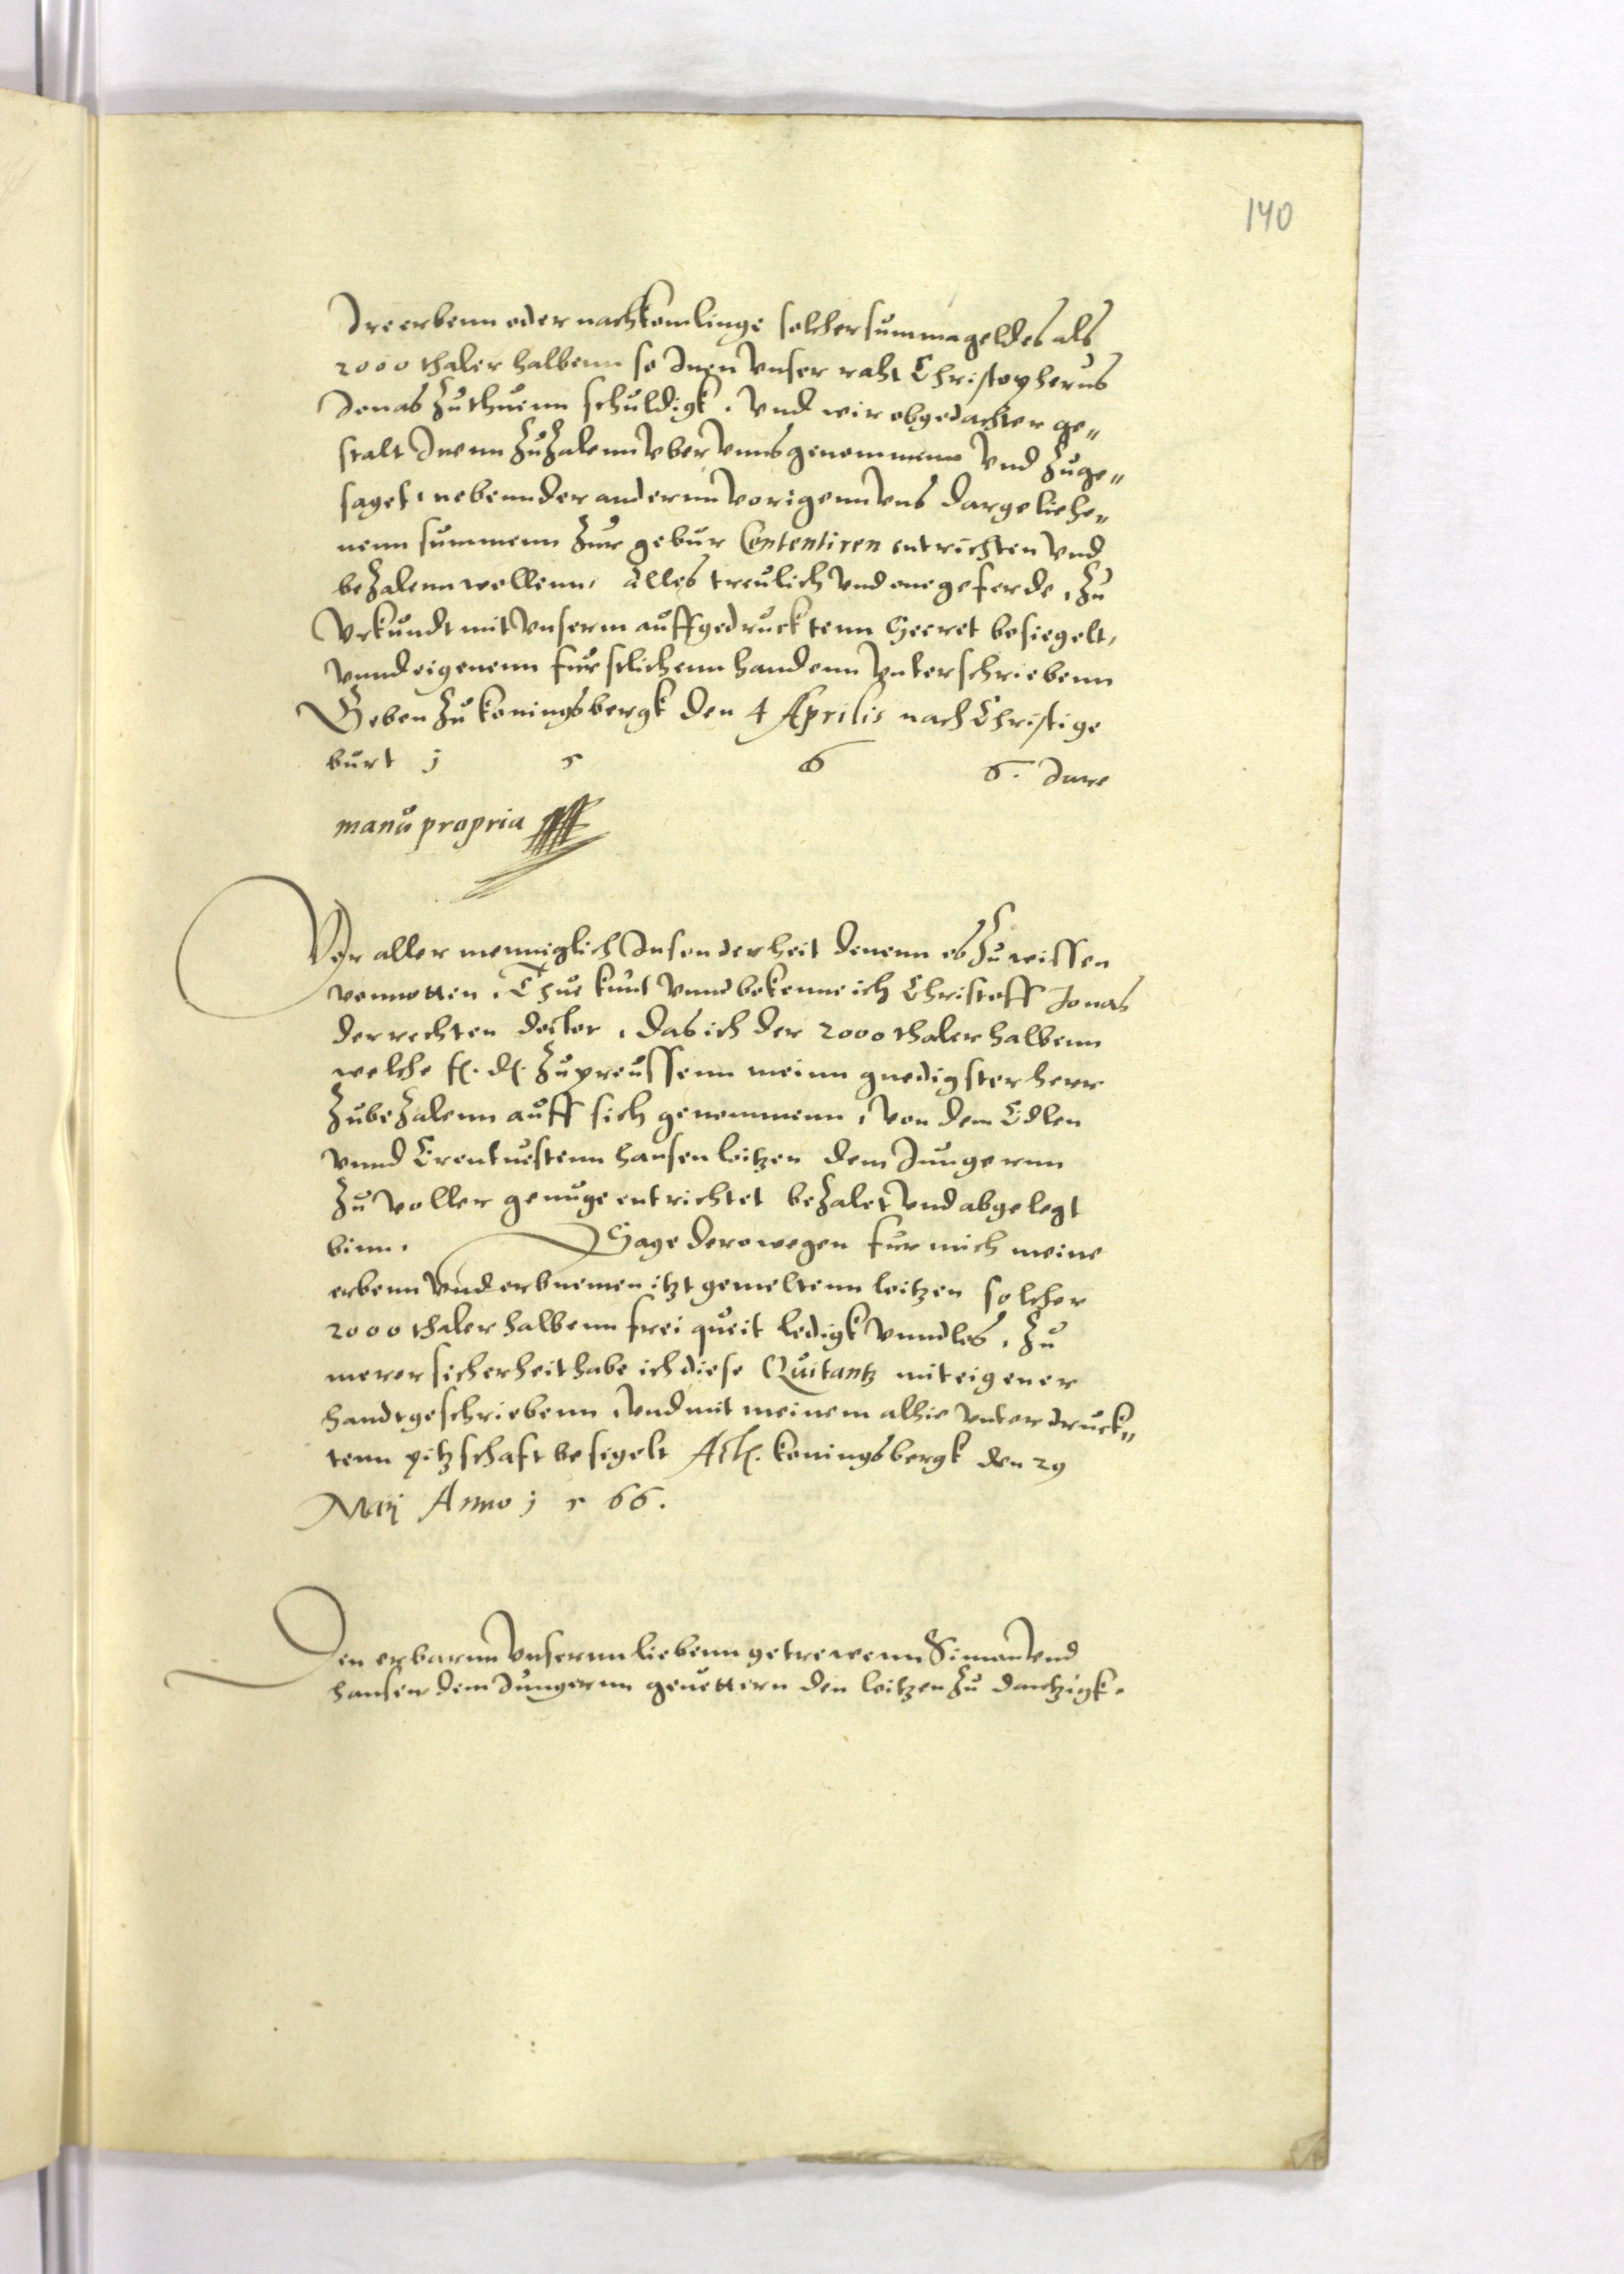 140
Ire erbenn oder nachkomlinge solcher summa geldes als
2000 thaler halbenn so Inen vnser raht Christopherus
Jonas zu thuenn schuldigk. vnd wir obgedachter ge„
stalt Inenn zu zalenn vber vnns genommenn vnd zuge„
saget, nebenn der anderun vorigenn vns dargeliehe„
nenn summenn zur gebur Contentiren entrichten vnd
bezalenn wollenn, alles treulich vnd one geferde, zu
Vrkundt mit vnserm auffgedrucktenn Secret besiegelt,
vnnd eigenenn furstlichenn handenn vnterschriebenn
Geben zu koningsbergk den 4 Aprilis nach Christi ge
burt j 5 6 6. Jare
manu propria
Vor aller menniglich Insonderheit denenn es zu wissen
vonnotten, Thue kunt vnnd bekenne ich Christoff Jonas
der rechten doctor, das ich der 2000 thaler halbenn
welche f. d. zu preussenn meinn gnedigster herr
zubezalenn auff sich genommenn, von dem Edlen
vnnd Erentuestenn hansen loitzen dem Jungernn
zu voller genuge entrichtet bezalet vnd abgelegt
binn. Sage derowegen fur mich meine
erbenn vnd erbnemen itzt gemeltenn loitzen solcher
2000 thaler halbenn frei queit ledigk vnnd los, zu
merer sicherheit habe ich diese Quitantz mit eigener
handt geschriebenn, vnd mit meinem alhie vnterdruck„
tenn pitzschaft besigelt Act. koningsbergk den 29
Maij Anno j 5 66.
Den erbarnn vnsernn liebenn getrewenn Simon vnd
hansen dem Jungernn geuettern den loitzen zu dantzigk.